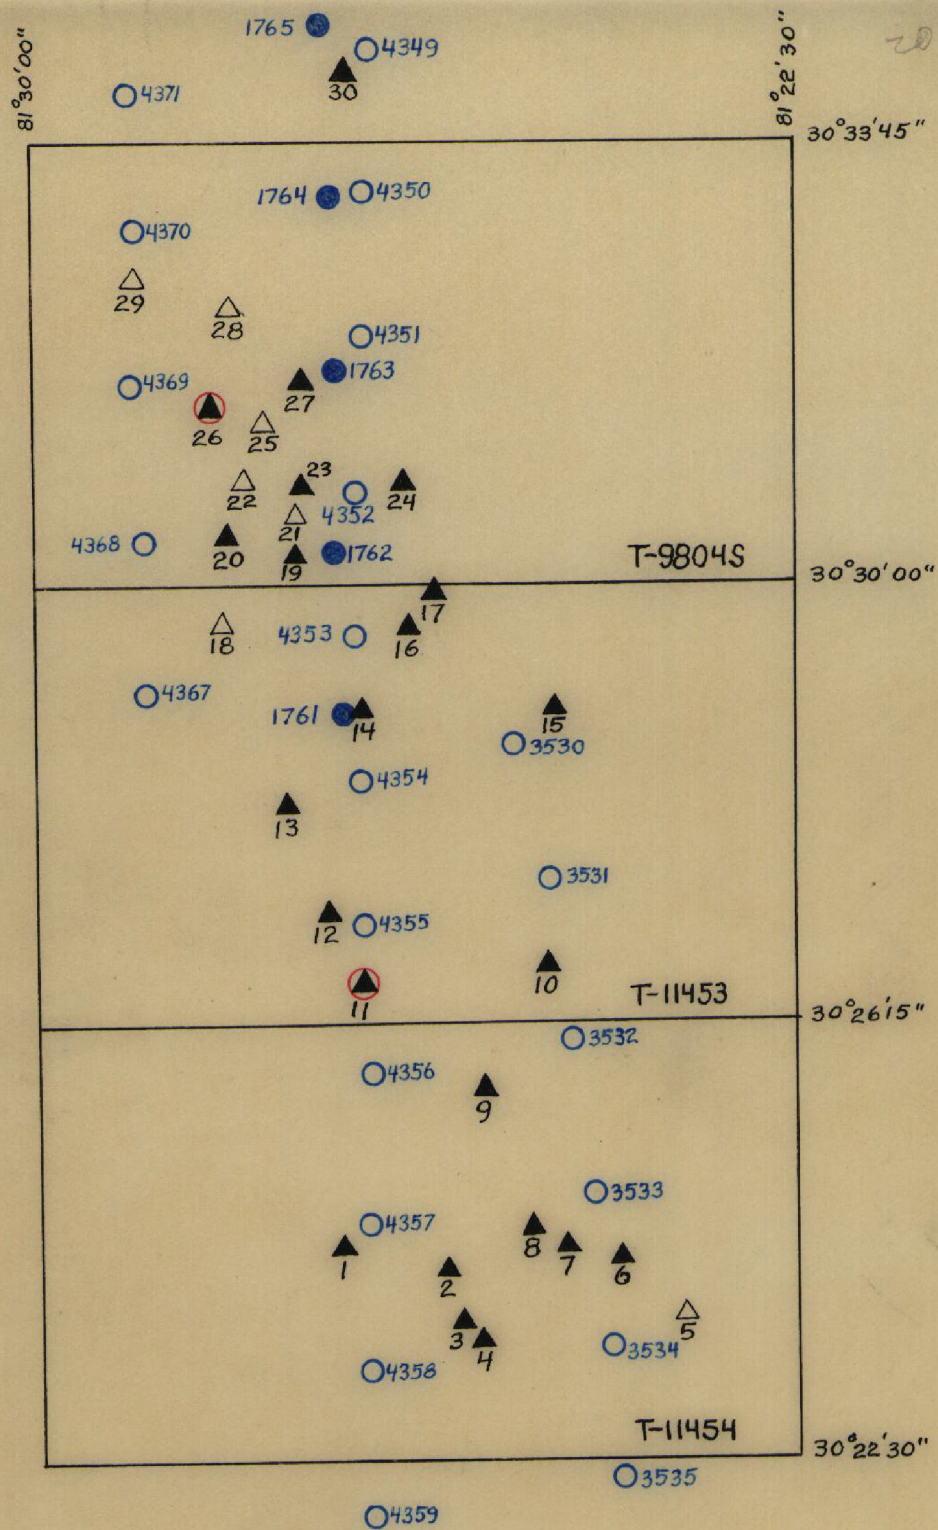 1765
4349
81°30'00"
81°22'30"
30
4371
30°33'45"
1764
4350
4370
29
28
4351
1763
4369
27
26
25
23
22
24
4352
21
4368
20
19
1762
T-9804S
30°30'00"
17
18
4353
16
4367
1761
14
15
3530
4354
13
3531
12
4355
10
11
T-11453
30°26'15"
3532
4356
9
3533
4357
8
7
6
1
2
3
4
5
3534
4358
T-11454
30°22'30"
3535
4359